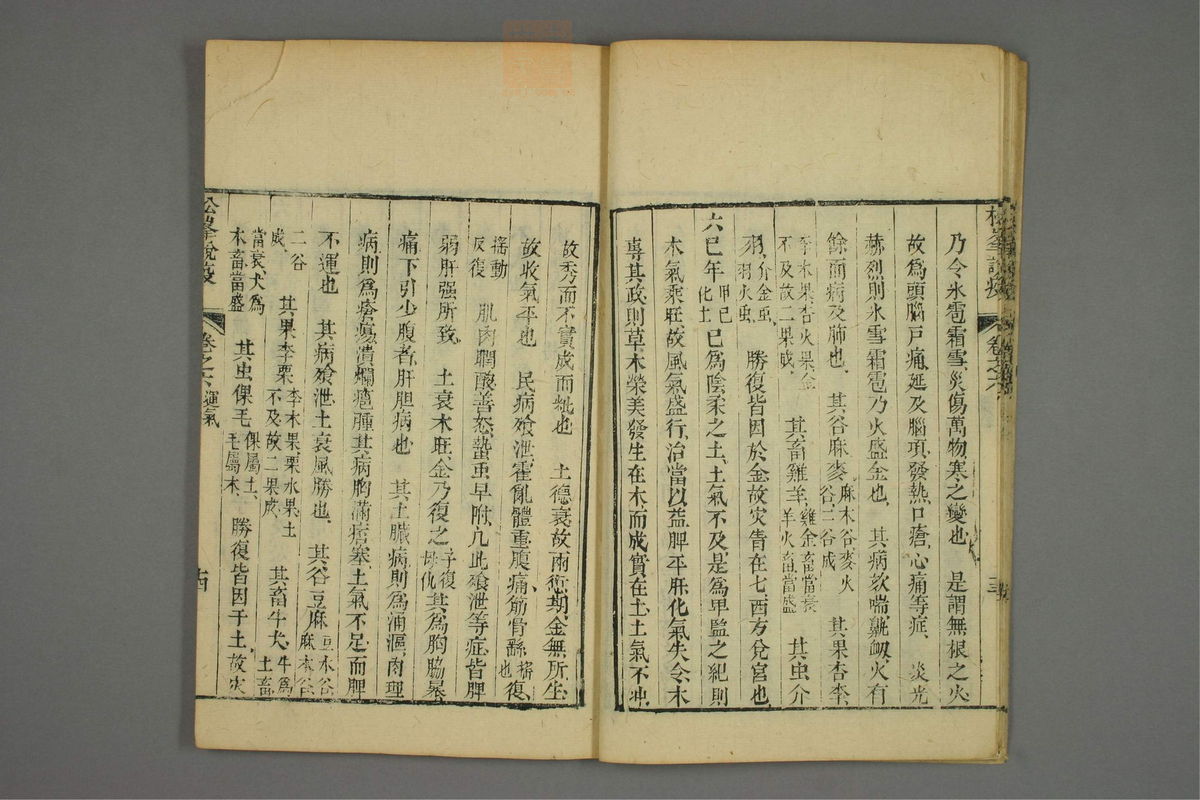 乃令氷雹霜雪災傷萬物寒之變也　是謂無根之火
故爲頭腦戸痛延及腦項發熱口瘡心痛等症　炎光
赫烈則氷雪霜雹乃火盛金也　其病欬喘鼽衂火有
餘而病及肺也　其谷麻麥麻木谷麥火谷二谷成　其果杏李
李木果杏火果金不及故二果成　其畜雞羊雞金畜當衰羊火畜當盛　其虫介
羽介金虫羽火虫　勝復皆因於金故灾眚在七西方兌宮也
六巳年甲己化土　巳爲陰柔之土土氣不及是爲卑監之紀則
木氣乘旺故風氣盛行治當以益脾平肝化氣失令木
專其政則草木榮美發生在木而成實在土土氣不冲
故秀而不實成而粃也　土德衰故雨衍期金無所生
故收氣平也　民病飧泄霍亂體重腹痛筋骨繇搖也復
搖動反復　肌肉瞤酸善怒蟄虫早附凢此飧泄等症皆脾
弱肝强所致　土衰木旺金乃復之子復母仇其爲胸脇暴
痛下引少腹者肝胆病也　其土臟病則爲涌漚肉理
病則爲瘡瘍潰爛癰腫其病胸滿痞塞土氣不足而脾
不運也　其病飧泄土衰風勝也　其谷豆麻豆水谷麻木谷
二谷成　其果李栗李木果栗水果土不及故二果成　其畜牛犬牛爲土畜
當衰犬爲木畜當盛　其虫倮毛倮屬土毛屬木　勝復皆因于土故灾
松峯說疫　卷之六　運氣　十四